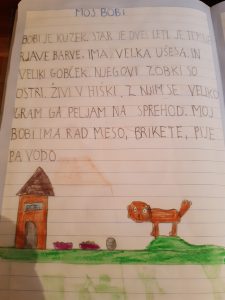 MOJ BOBI
BOBI JE KUŽEK. STAR JE DVE LETI. JE TEMNO
RJAVE BARVE. IMA, VELKA UŠESA. IN
VELIKI GOBČEK. NJEGOVI ZOBKI SO
OSTRI. ŽIVI V HIŠKI, Z NJIM SE VELIKO
IGRAM GA PELJAM NA SPREHOD. MOJ
BOBI IMA RAD MESO, BRIKETE, PIJE
PA VODO.